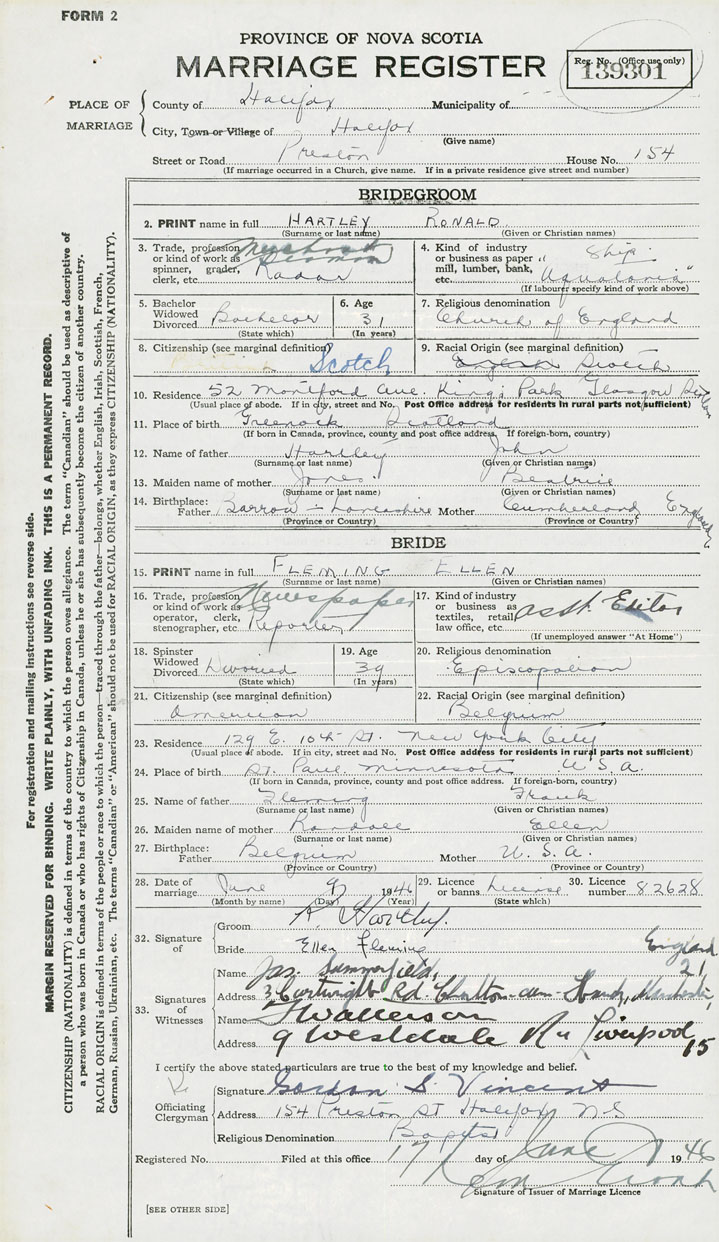 FORM 2
PROVINCE OF NOVA SCOTIA
MARRIAGE REGISTER
Reg. No. (Office use only)
139301
PLACE OF MARRIAGE
County of Halifax Municipality of
City, Town or Village of Halifax
(Give name)
Street or Road Preston House No. 154
(If marriage occurred in a Church, give name. If in a private residence give street and number)
BRIDEGROOM
2. PRINT name in full HARTLEY RONALD
(Surname or last name) (Given or Christian names)
3. Trade, profession or kind of work as spinner, grader, clerk, etc. Radar
4. Kind of industry or business as paper mill, lumber, bank, etc. Ship
(If labourer specify kind of work above)
5. Bachelor Widowed Divorced Bachelor
(State which)
6. Age 31
(In years)
7. Religious denomination
Church of England
8. Citizenship (see marginal definition)
Scotch
9. Racial Origin (see marginal definition)
English Scotch
10. Residence 52 Montford Ave. Kings Park Glasgow
(Usual place of abode. If in city, street and No. Post Office address for residents in rural parts not sufficient)
11. Place of birth Greenock Scotland
(If born in Canada, province, county and post office address. If foreign-born, country)
12. Name of father Hartley John
(Surname or last name) (Given or Christian names)
13. Maiden name of mother Jones Beatrice
(Surname or last name) (Given or Christian names)
14. Birthplace: Father Barrow - Lancashire Mother Cumberland England
(Province or Country) (Province or Country)
BRIDE
15. PRINT name in full FLEMING ELLEN
(Surname or last name) (Given or Christian names)
16. Trade, profession or kind of work as operator, clerk, stenographer, etc. Newspaper Reporter
17. Kind of industry or business as textiles, retail law office, etc. asst. Editor
(If unemployed answer "At Home")
18. Spinster Widowed Divorced Divorced
(State which)
19. Age 39
(In years)
20. Religious denomination
Episcopalian
21. Citizenship (see marginal definition)
American
22. Racial Origin (see marginal definition)
Belgium
23. Residence 129 E. 10th St. New York City
(Usual place of abode. If in city, street and No. Post Office address for residents in rural parts not sufficient)
24. Place of birth St. Paul Minnesota U.S.A.
(If born in Canada, province, county and post office address. If foreign-born, country)
25. Name of father Fleming Frank
(Surname or last name) (Given or Christian names)
26. Maiden name of mother Randall Ellen
(Surname or last name) (Given or Christian names)
27. Birthplace: Father Belgium Mother U.S.A.
(Province or Country) (Province or Country)
28. Date of marriage June 9 1946
(Month by name) (Day) (Year)
29. Licence or banns License
(State which)
30. Licence number 82628
32. Signature of
Groom R. Hartley.
Bride Ellen Fleming
33. Signatures of Witnesses
Name Jas. Summerfield,
England 21
Address 3 Cartwright Rd. Manchester,
Name
Address 9 Westdale Liverpool 15
I certify the above stated particulars are true to the best of my knowledge and belief.
Officiating Clergyman
Signature Gordon S. Vincent
Address 154 Preston St Halifax N.S
Religious Denomination Baptist
Registered No. Filed at this office 17 day of June 1946
Signature of Issuer of Marriage Licence
[SEE OTHER SIDE]
For registration and mailing instructions see reverse side.
MARGIN RESERVED FOR BINDING. WRITE PLAINLY, WITH UNFADING INK. THIS IS A PERMANENT RECORD.
CITIZENSHIP (NATIONALITY) is defined in terms of the country to which the person owes allegiance. The term "Canadian" should be used as descriptive of
a person who was born in Canada or who has rights of Citizenship in Canada, unless he or she has subsequently become the citizen of another country.
RACIAL ORIGIN is defined in terms of the people or race to which the person—traced through the father—belongs, whether English, Irish, Scottish, French,
German, Russian, Ukrainian, etc. The terms "Canadian" or "American" should not be used for RACIAL ORIGIN, as they express CITIZENSHIP (NATIONALITY).